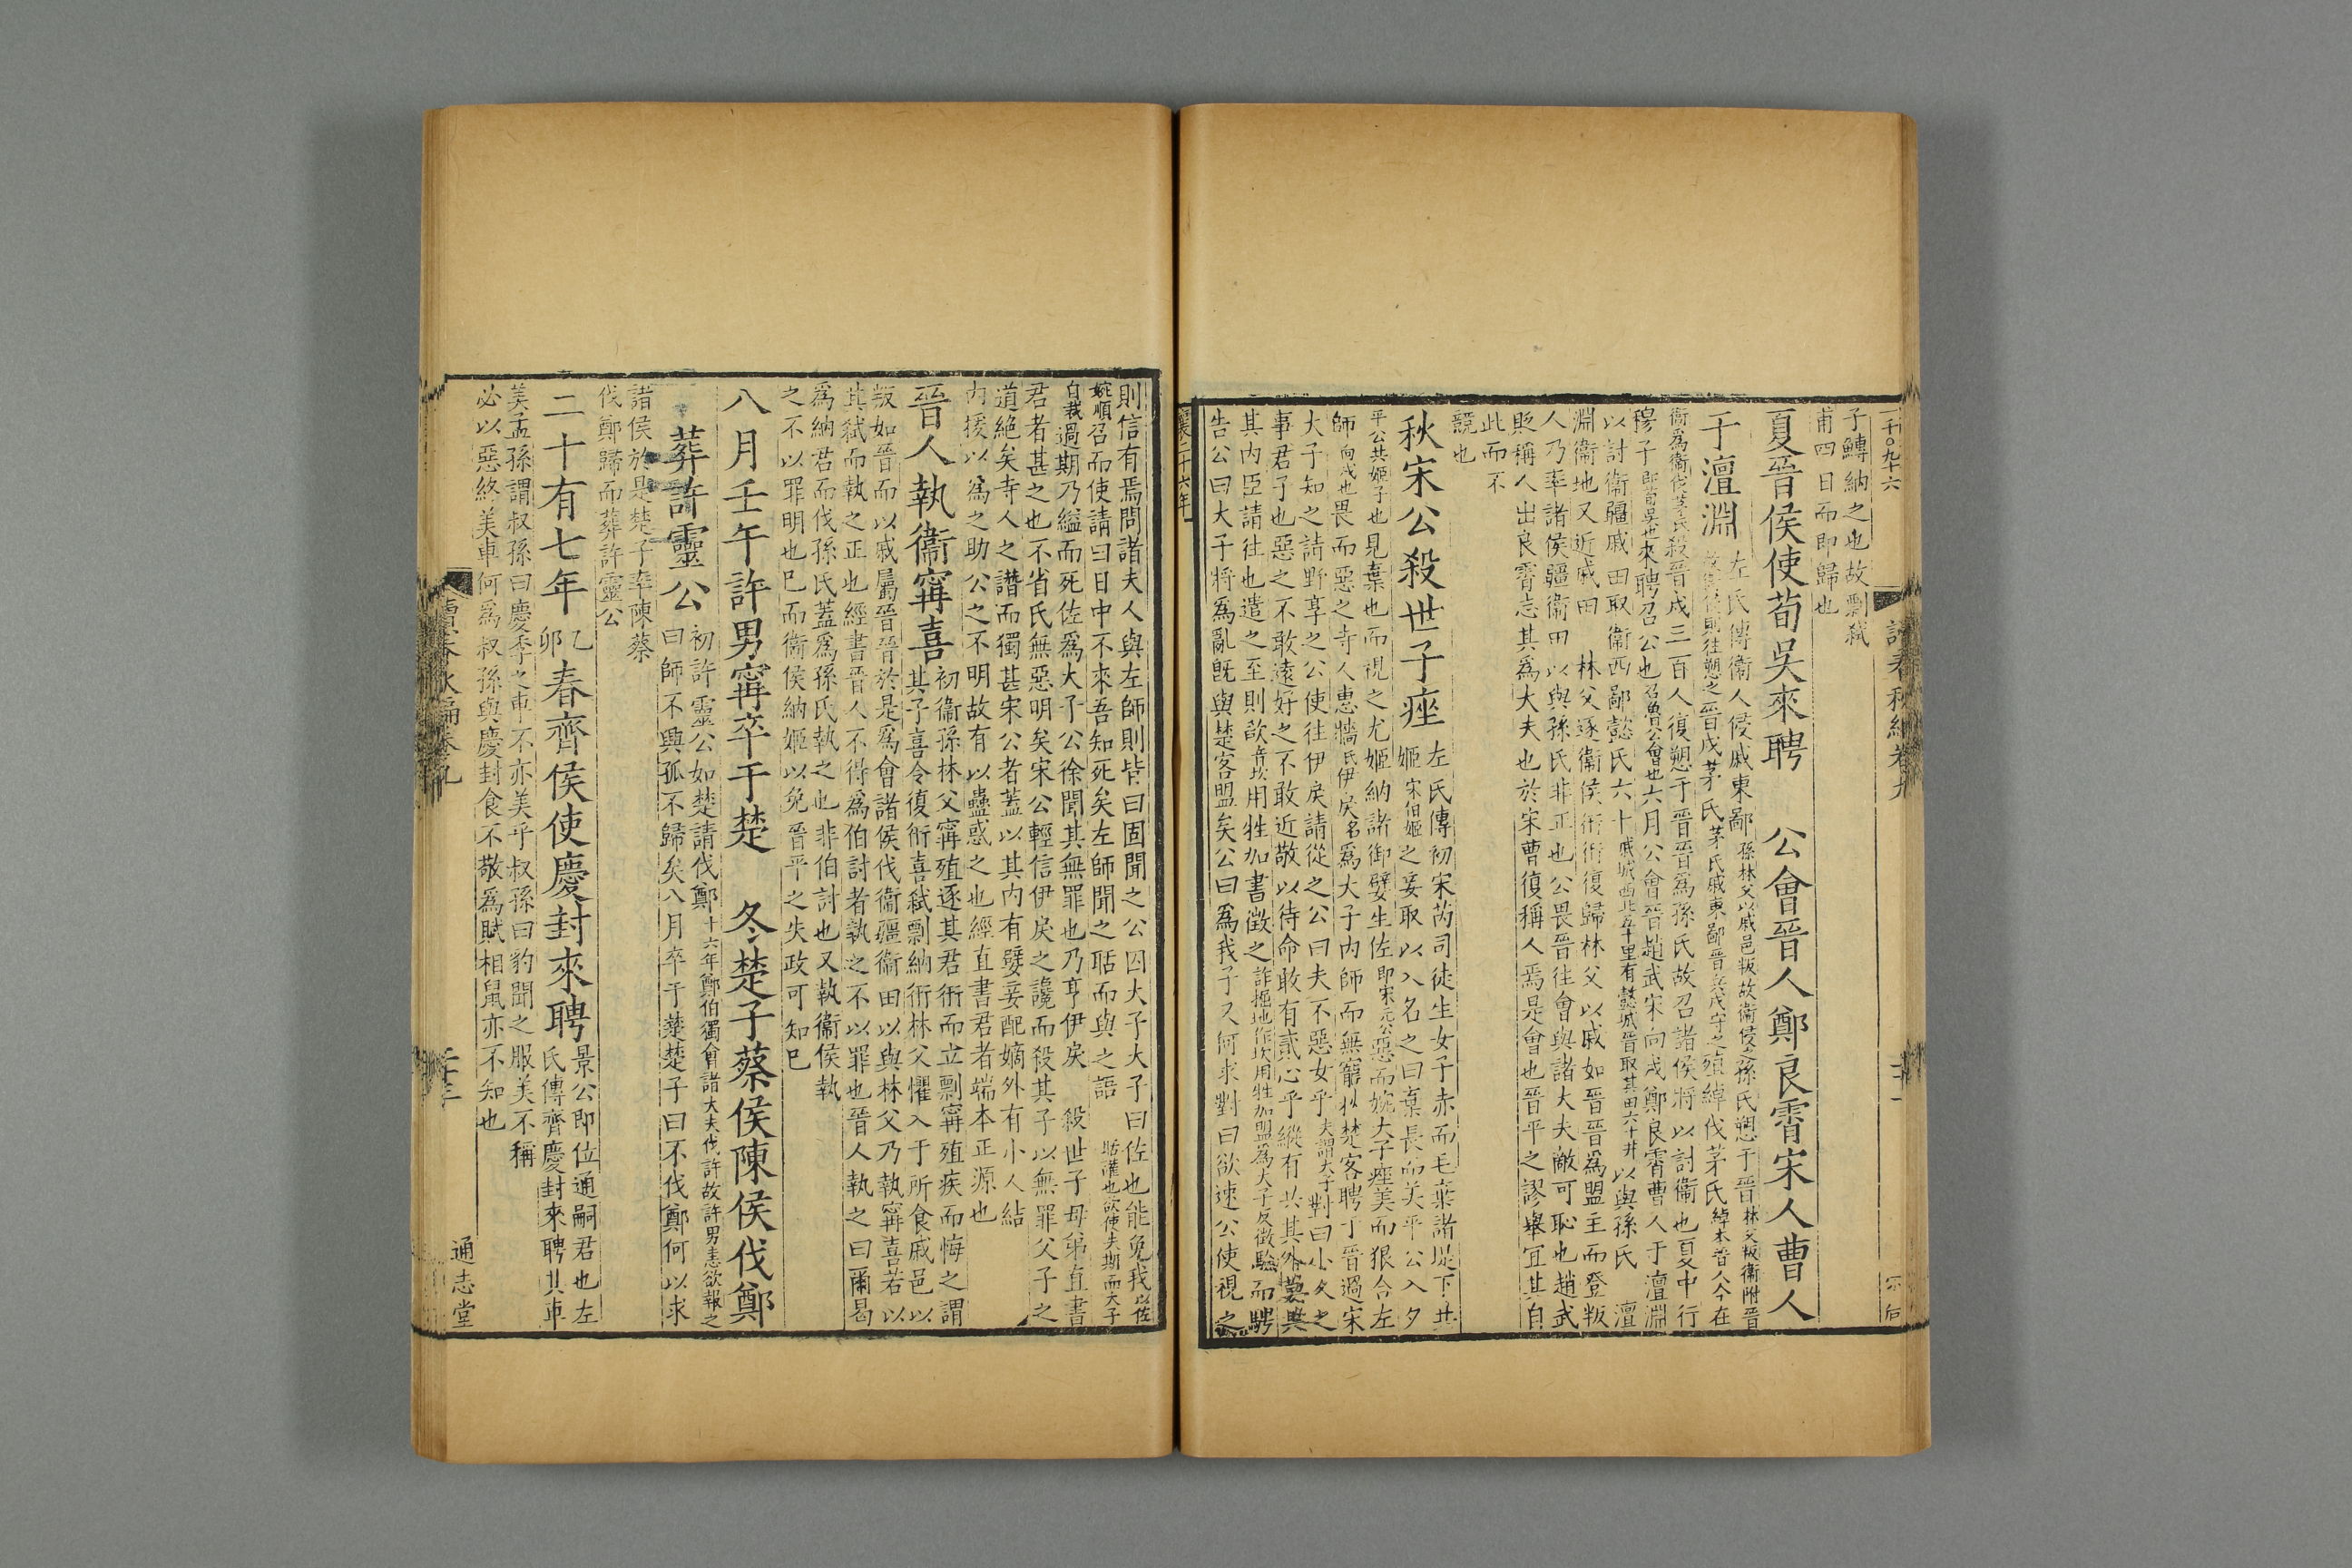 一千〇九十六
讀春秋編卷九
子鱄納之也故剽弑
甫四日而即歸也
夏晉侯使荀吳來聘 公會晉人鄭良霄宋人曹人
于澶淵
左氏傳衞人侵戚東鄙孫林父以戚邑叛故衞侵之孫氏愬于晉林父叛衞附晉
故衞伐則往愬之晉戍茅氏茅氏戚東鄙晉以戍守之殖綽伐茅氏綽本晉人今在
衞爲衞伐茅氏殺晉戍三百人復愬于晉晉爲孫氏故召諸侯將以討衞也夏中行
穆子即荀吳也來聘召公也召魯公會也六月公會晉趙武宋向戌鄭良霄曹人于澶淵
以討衞疆戚田取衞西鄙懿氏六十戚城西北五十里有懿城晉取其田六十井以與孫氏 澶
淵衞地又近戚田 林父逐衞侯衎衎復歸林父以戚如晉晉爲盟主而登叛
人乃率諸侯疆衞田以與孫氏非正也公畏晉往會與諸大夫敵可恥也趙武
貶稱人出良霄志其爲大夫也於宋曹復稱人焉是會也晉平之謬舉宜其自
此而不
競也
秋宋公殺世子痤
左氏傳初宋芮司徒生女子赤而毛棄諸堤下共
姬宋伯姬之妾取以入名之曰棄長而美平公入夕
平公共姬子也見棄也而視之尤姬納諸御嬖生佐即宋元公惡而婉大子痤美而狠合左
師向戌也畏而惡之寺人惠牆氏伊戾名爲大子內師而無寵秋楚客聘于晉過宋
大子知之請野享之公使往伊戾請從之公曰夫不惡女乎夫謂大子對曰小人之
事君子也惡之不敢遠好之不敢近敬以待命敢有貳心乎縱有共其外莫共
其內臣請往也遣之至則欿音坎用牲加書徵之詐掘地作坎用牲加盟爲大子反徵驗而騁
告公曰大子將爲亂旣與楚客盟矣公曰爲我子又何求對曰欲速公使視之
襄二十六年
則信有焉問諸夫人與左師則皆曰固聞之公囚大子大子曰佐也能免我以佐
婉順召而使請曰日中不來吾知死矣左師聞之聒而與之語聒讙也欲使失期而大子
自裁過期乃縊而死佐爲大子公徐聞其無罪也乃亨伊戾 殺世子母弟直書
君者甚之也不省氏無惡明矣宋公輕信伊戾之讒而殺其子以無罪父子之
道絕矣寺人之譖而獨甚宋公者蓋以其內有嬖妾配嫡外有小人結
內援以爲之助公之不明故有以蠱惑之也經直書君者端本正源也
晉人執衞甯喜
初衞孫林父甯殖逐其君衎而立剽甯殖疾而悔之謂
其子喜令復衎喜弑剽納衎林父懼入于所食戚邑以
叛如晉而以戚屬晉晉於是爲會諸侯伐衞疆衞田以與林父乃執甯喜若以
其弑而執之正也經書晉人不得爲伯討者執之不以罪也晉人執之曰爾曷
爲納君而伐孫氏蓋爲孫氏執之也非伯討也又執衞侯執
之不以罪明也已而衞侯納姬以免晉平之失政可知已
八月壬午許男甯卒于楚 冬楚子蔡侯陳侯伐鄭
葬許靈公
初許靈公如楚請伐鄭十六年鄭伯獨會諸大夫伐許故許男恚欲報之
曰師不興孤不歸矣八月卒于楚楚子曰不伐鄭何以求
諸侯於是楚子率陳蔡
伐鄭歸而葬許靈公
二十有七年乙卯春齊侯使慶封來聘
景公即位通嗣君也左
氏傳齊慶封來聘其車
美孟孫謂叔孫曰慶季之車不亦美乎叔孫曰豹聞之服美不稱
必以惡終美車何爲叔孫與慶封食不敬爲賦相鼠亦不知也
通志堂